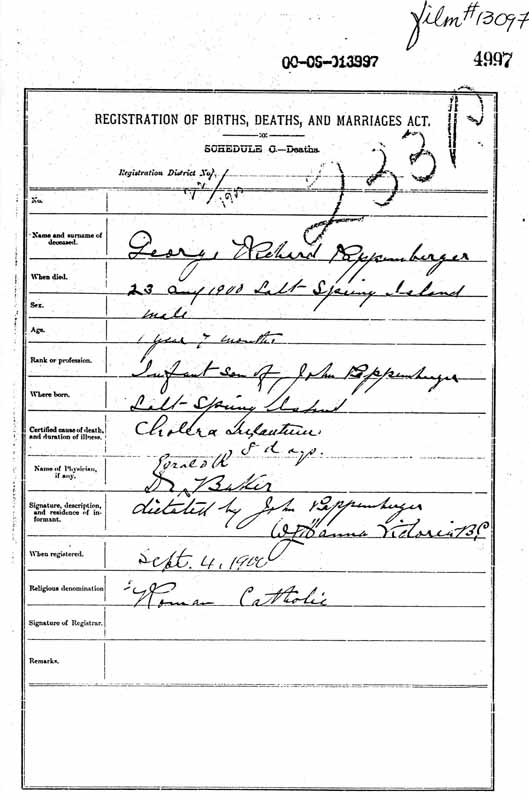 film #13097
00-09-013997
4997
233 P
REGISTRATION OF BIRTHS, DEATHS, AND MARRIAGES ACT.
SCHEDULE C.—Deaths.
Registration District No.
No.
Name and surname of deceased.
George Richard Pappenberger
When died.
23 aug 1900 Salt Spring Island
Sex.
male
Age.
1 year 7 months
Rank or profession.
Infant son of John Pappenberger
Where born.
Salt Spring Island
Certified cause of death, and duration of illness.
Cholera Infantum
8 days.
Name of Physician, if any.
Dr. Baker
Signature, description, and residence of informant.
dictated by John Pappenberger
Hanna Victoria B.C
When registered.
Sept. 4, 1900
Religious denomination
Roman Catholic
Signature of Registrar.
Remarks.